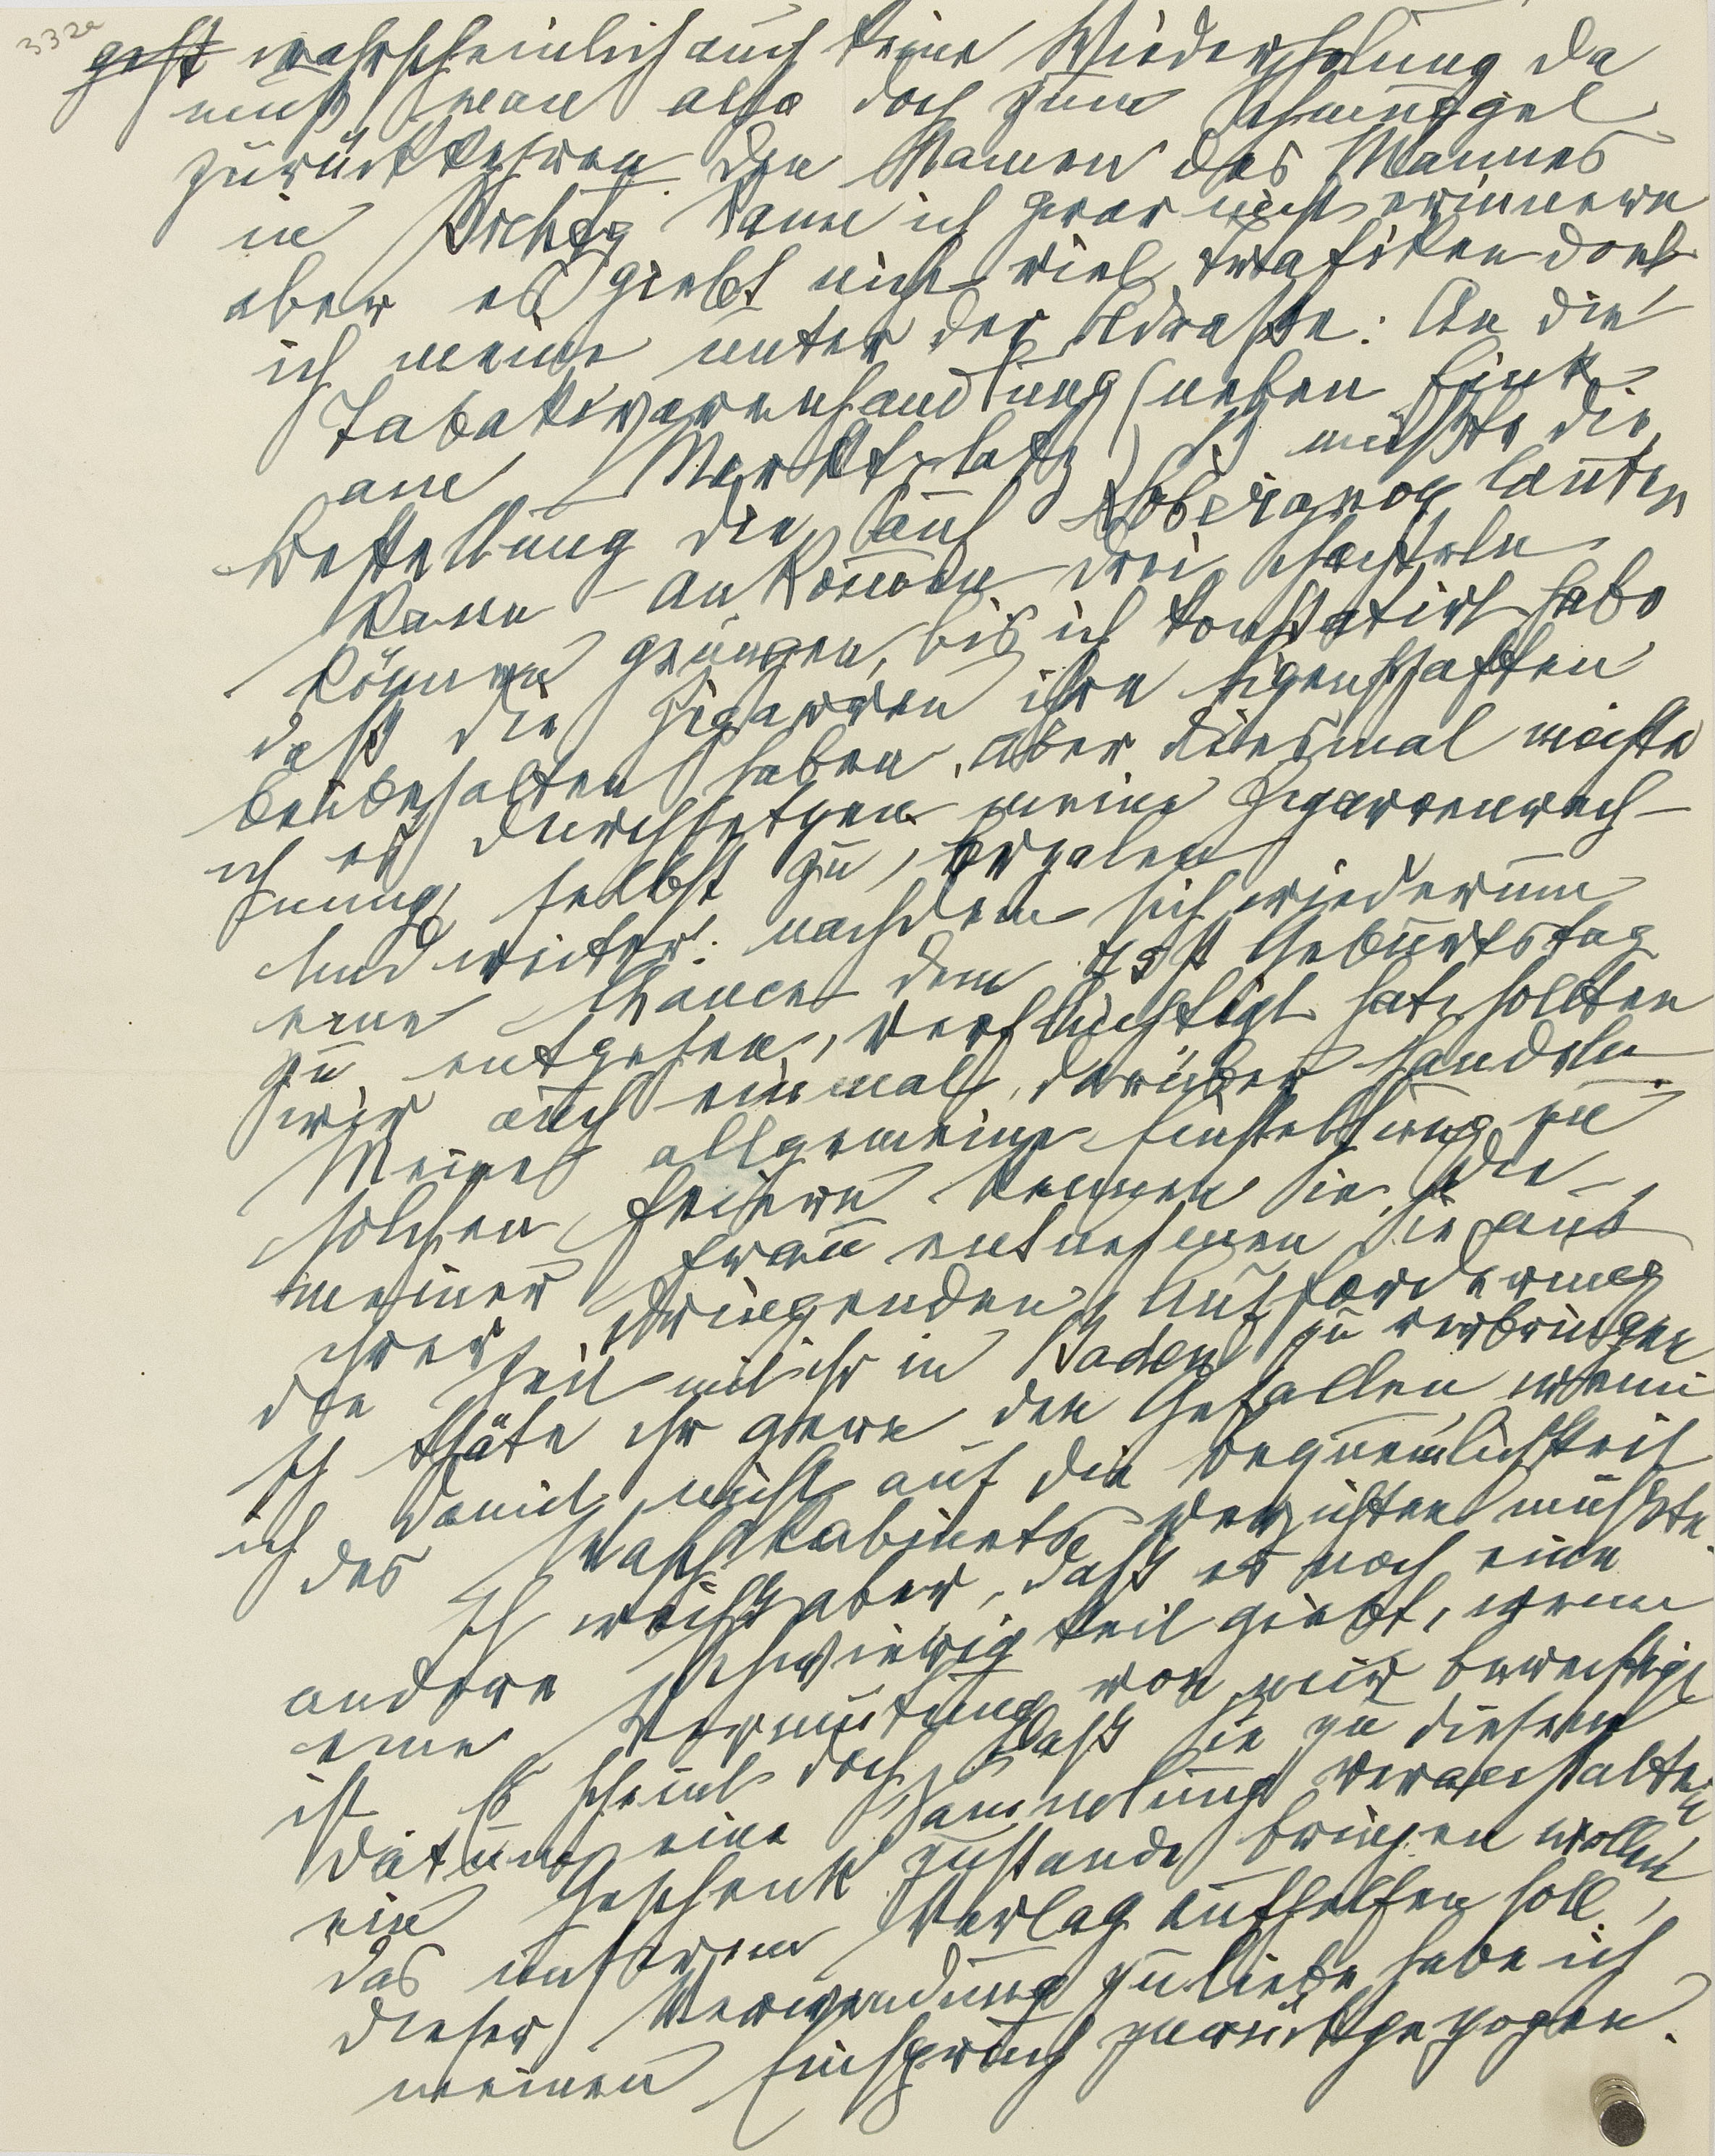 332a
geht wahrscheinlich auch keine Wiederholung da
muß man also doch zum Schmuggel
zurückkehren. Den Namen des Mannes
in kann ich zwar nicht erinnern
aber es giebt nicht viel Trafiken dort
ich meine unter der Adresse: An die
Tabakwarenhandlung (neben Fink
am Marktplatz) müßte die
Bestellung die auf Obergrog lauten
kann ankommen drei Schachteln
können genügen, bis ich konstatirt habe
daß die Zigarren ihre Eigenschaften
beibehalten haben, aber diesmal möchte
ich es durchsetzen meine Zigarrenrech-
nung selbst zu bezalen
Und weiter: nachdem sich wiederum
eine Chance dem 75st Geburtstag
zu entgehen, verflüchtigt hat, sollten
wir auch einmal darüber handeln.
Meine allgemeine Einstellung zu
solchen Feiern kennen Sie, die
meiner Frau entnehmen Sie aus
ihrer dringenden Aufforderung
die Zeit mit ihr in Baden zu verbringen
Ich thäte ihr gern den Gefallen wenn
ich damit nicht auf die Bequemlichkeit
des Waschkabinets verzichten müßte.
Ich weiß aber, daß es noch eine
andere Schwierigkeit giebt, wenn
eine Vermutung von mir berechtigt
ist Es scheint doch, daß Sie zu diesem
Datum eine Sammlung veranstalten
ein Geschenk zustande bringen wollen,
das unserem Verlag aufhelfen soll,
dieser Verwendung zuliebe habe ich
meinen Einspruch zurückgezogen.